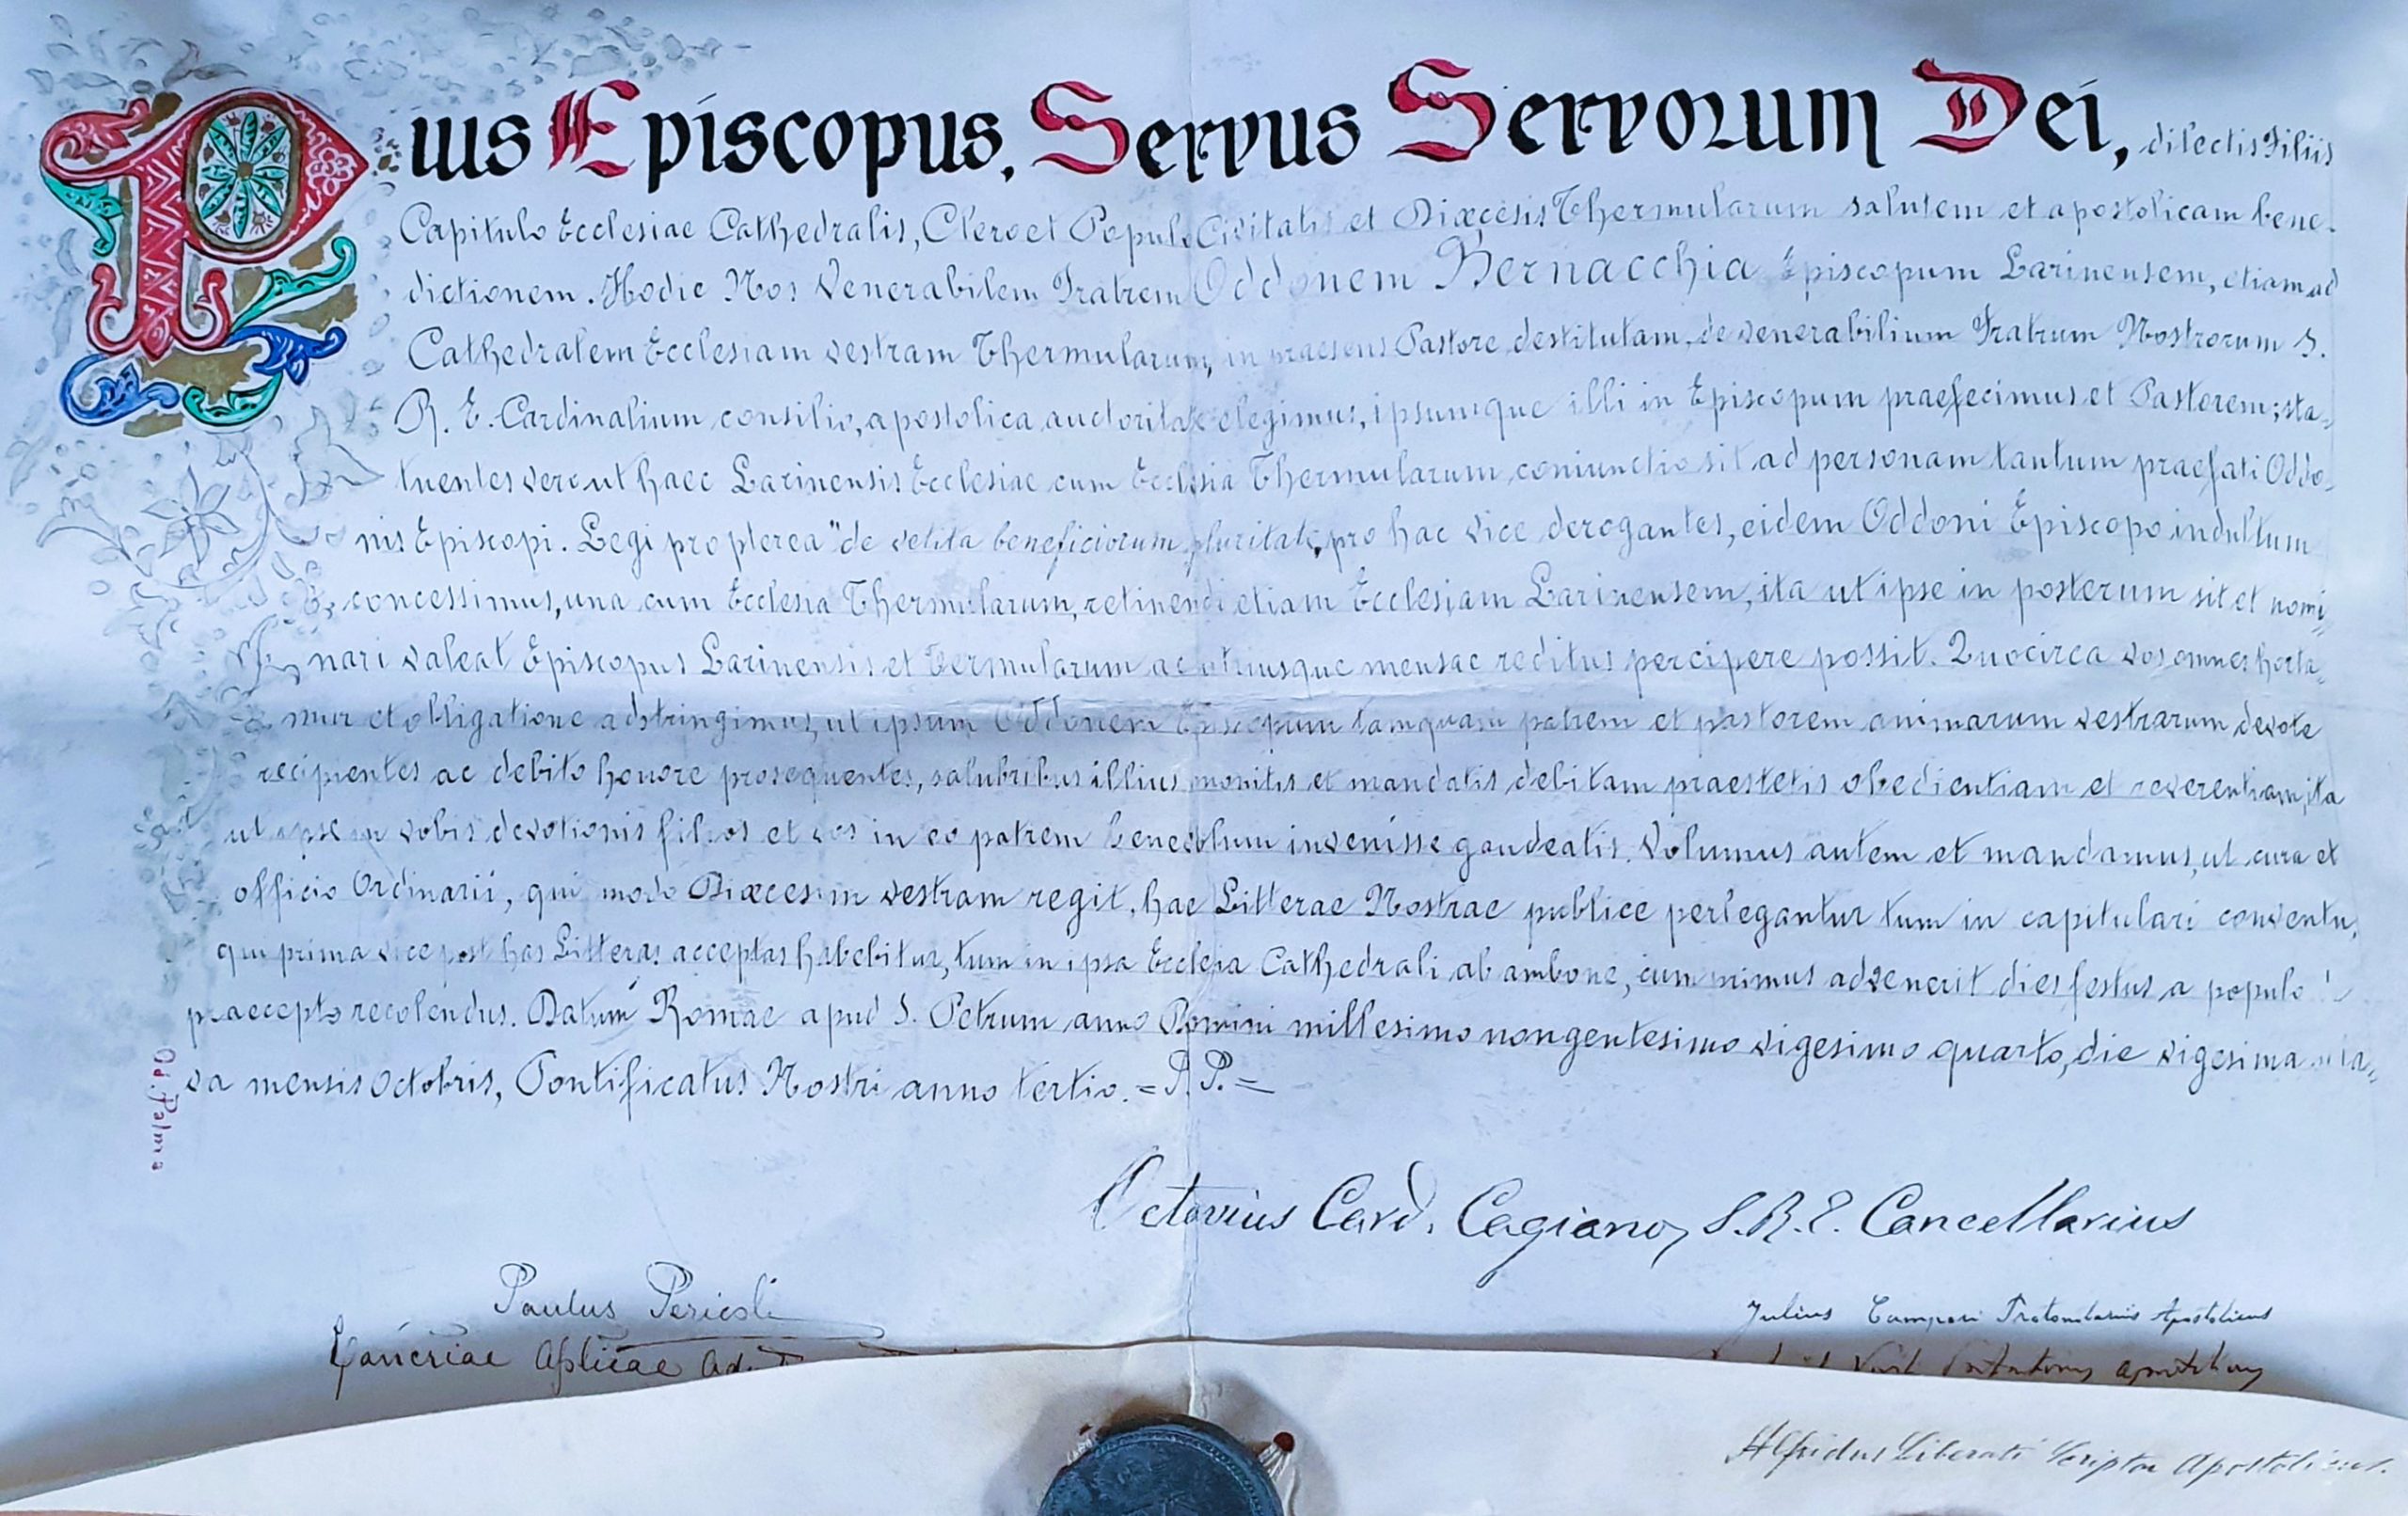 Pius Episcopus, Servus Servorum Dei, dilectis Filiis
Capitulo Ecclesiae Cathedralis, Clero et Populo Civitatis et Diœcesis Thermularum salutem et apostolicam bene-
dictionem. Hodie Nos Venerabilem Fratrem Oddonem Bernacchia Episcopum Larinensem, etiam ad
Cathedralem Ecclesiam vestram Thermularum, in praesens Pastore destitutam, de venerabilium Fratrum Nostrorum S.
R. E. Cardinalium consilio, apostolica auctoritate elegimus, ipsumque illi in Episcopum praefecimus et Pastorem; sta-
tuentes vero ut haec Larinensis Ecclesiae cum Ecclesia Thermularum coniunctio sit ad personam tantum praefati Oddo-
nis Episcopi. Legi propterea "de vetita beneficiorum pluritate, pro hac vice derogantes, eidem Oddoni Episcopo indultum
concessimus, una cum Ecclesia Thermularum, retinendi etiam Ecclesiam Larinensem, ita ut ipse in posterum sit et nomi-
nari valeat Episcopus Larinensis et Termularum ac utriusque mensae reditus percipere possit. Quocirca vos omnes horta-
mur et obligatione adstringimus, ut ipsum Oddonem Episcopum tamquam patrem et pastorem animarum vestrarum devote
recipientes ac debito honore prosequentes, salubribus illius monitis et mandatis debitam praestetis obedientiam et reverentiam, ita
ut ipse in vobis devotionis filios et vos in eo patrem benevolum invenisse gaudeatis. Volumus autem et mandamus, ut cura et
officio Ordinarii, qui modo Diœcesim vestram regit, hae Litterae Nostrae publice perlegantur tum in capitulari conventu,
qui prima vice post has Litteras acceptas habebitur, tum in ipsa Ecclesia Cathedrali ab ambone, cum primus advenerit dies festus a populo
praecepto recolendus. Datum Romae apud S. Petrum anno Domini millesimo nongentesimo vigesimo quarto, die vigesima octa-
va mensis Octobris, Pontificatus Nostri anno tertio. = P. P. =
Od. Palma
Octavius Card. Cagiano, S. R. E. Cancellarius
Paulus Pericoli
Cancriae Aplicae Ad.
Julius Campori Protonotarius Apostolicus
Alfridus Liberati Scriptor Apostolicus.